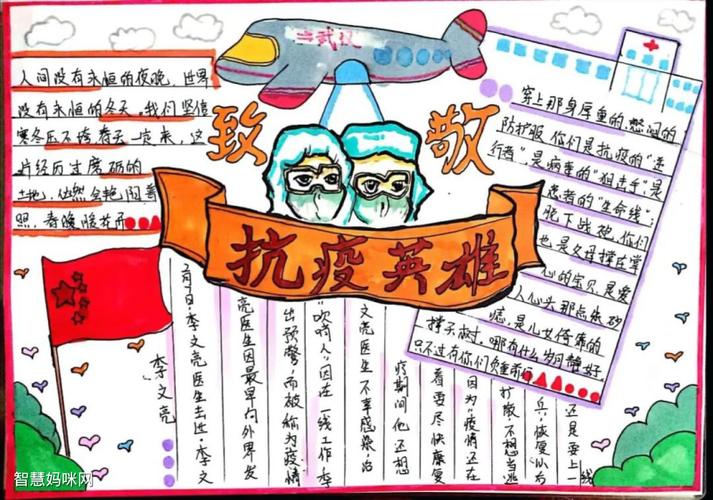 武汉
致敬
抗疫英雄
人间没有永恒的夜晚，世界
没有永恒的冬天。我们坚信
寒冬压不垮春天一定来，这
片经历过磨砺的
土地，依然会艳阳普
照，春暖花开
穿上那身厚重的，憋闷的
防护服，你们是抗疫的“逆
行者”，是病毒的“狙击手”是
患者的“生命线”；
脱下战袍，你们
也是父母捧在掌
心的宝贝，是爱
人心头那点朱砂
痣，是儿女倚靠的
撑天树。哪有什么岁月静好，
只不过有你们负重前行
李文亮
2月7日，李文亮医生去世，李文
亮医生因最早向外界发
出预警，而被称为疫情
“吹哨人”。因在一线工作，李
文亮医生不幸感染，治
疗期间他还想
着要尽快康复
因为“疫情还在
扩散，不想当逃
兵，恢复以后
还是要上一线
智慧妈咪网